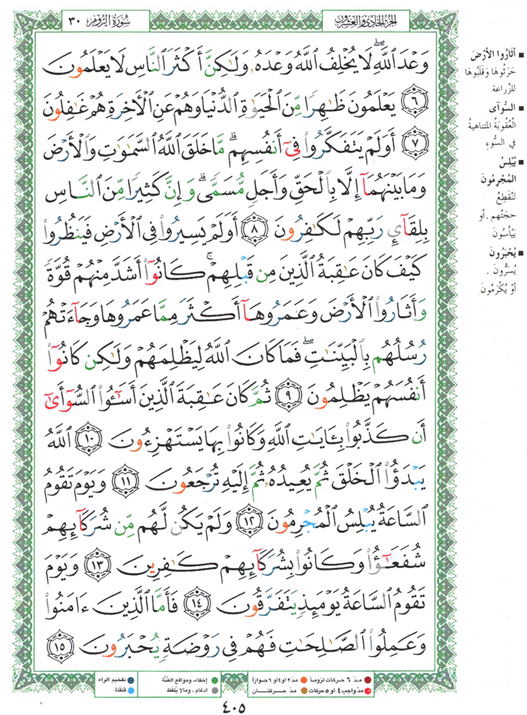 سُورَةُ الرُّومِ ٣٠
الجُزْءُ الحَادِي وَالعِشْرُونَ
وَعْدَ ٱللَّهِ ۖ لَا يُخْلِفُ ٱللَّهُ وَعْدَهُۥ وَلَٰكِنَّ أَكْثَرَ ٱلنَّاسِ لَا يَعْلَمُونَ
٦ يَعْلَمُونَ ظَٰهِرًا مِّنَ ٱلْحَيَوٰةِ ٱلدُّنْيَا وَهُمْ عَنِ ٱلْـَٔاخِرَةِ هُمْ غَٰفِلُونَ
٧ أَوَلَمْ يَتَفَكَّرُوا۟ فِىٓ أَنفُسِهِم ۗ مَّا خَلَقَ ٱللَّهُ ٱلسَّمَٰوَٰتِ وَٱلْأَرْضَ
وَمَا بَيْنَهُمَآ إِلَّا بِٱلْحَقِّ وَأَجَلٍ مُّسَمًّى ۗ وَإِنَّ كَثِيرًا مِّنَ ٱلنَّاسِ
بِلِقَآئِ رَبِّهِمْ لَكَٰفِرُونَ ٨ أَوَلَمْ يَسِيرُوا۟ فِى ٱلْأَرْضِ فَيَنظُرُوا۟
كَيْفَ كَانَ عَٰقِبَةُ ٱلَّذِينَ مِن قَبْلِهِمْ ۚ كَانُوٓا۟ أَشَدَّ مِنْهُمْ قُوَّةً
وَأَثَارُوا۟ ٱلْأَرْضَ وَعَمَرُوهَآ أَكْثَرَ مِمَّا عَمَرُوهَا وَجَآءَتْهُمْ
رُسُلُهُم بِٱلْبَيِّنَٰتِ ۖ فَمَا كَانَ ٱللَّهُ لِيَظْلِمَهُمْ وَلَٰكِن كَانُوٓا۟
أَنفُسَهُمْ يَظْلِمُونَ ٩ ثُمَّ كَانَ عَٰقِبَةَ ٱلَّذِينَ أَسَٰٓـُٔوا۟ ٱلسُّوٓأَىٰٓ
أَن كَذَّبُوا۟ بِـَٔايَٰتِ ٱللَّهِ وَكَانُوا۟ بِهَا يَسْتَهْزِءُونَ ١٠ ٱللَّهُ
يَبْدَؤُا۟ ٱلْخَلْقَ ثُمَّ يُعِيدُهُۥ ثُمَّ إِلَيْهِ تُرْجَعُونَ ١١ وَيَوْمَ تَقُومُ
ٱلسَّاعَةُ يُبْلِسُ ٱلْمُجْرِمُونَ ١٢ وَلَمْ يَكُن لَّهُم مِّن شُرَكَآئِهِمْ
شُفَعَٰٓؤُا۟ وَكَانُوا۟ بِشُرَكَآئِهِمْ كَٰفِرِينَ ١٣ وَيَوْمَ
تَقُومُ ٱلسَّاعَةُ يَوْمَئِذٍ يَتَفَرَّقُونَ ١٤ فَأَمَّا ٱلَّذِينَ ءَامَنُوا۟
وَعَمِلُوا۟ ٱلصَّٰلِحَٰتِ فَهُمْ فِى رَوْضَةٍ يُحْبَرُونَ ١٥
■ أَثَارُوا الأَرْضَ
حَرَثُوهَا وَقَلَّبُوهَا
لِلزِّرَاعَةِ
■ السُّوأَى
العُقُوبَةُ المُتَنَاهِيَةُ
فِي السُّوءِ
■ يُبْلِسُ
المُجْرِمُونَ
تَنْقَطِعُ
حُجَّتُهُمْ ، أَو
يَيْأَسُونَ
■ يُحْبَرُونَ
يُسَرُّونَ ،
أَو يُكْرَمُونَ
مدّ ٦ حركات لزوماً
مدّ ٢ أو ٤ أو ٦ جوازاً
إخفاء، ومواقع الغُنَّة
تفخيم الراء
مدّ واجب ٤ أو ٥ حركات
مدّ حركتان
إدغام ، وما لا يُلفظ
قلقلة
٤٠٥